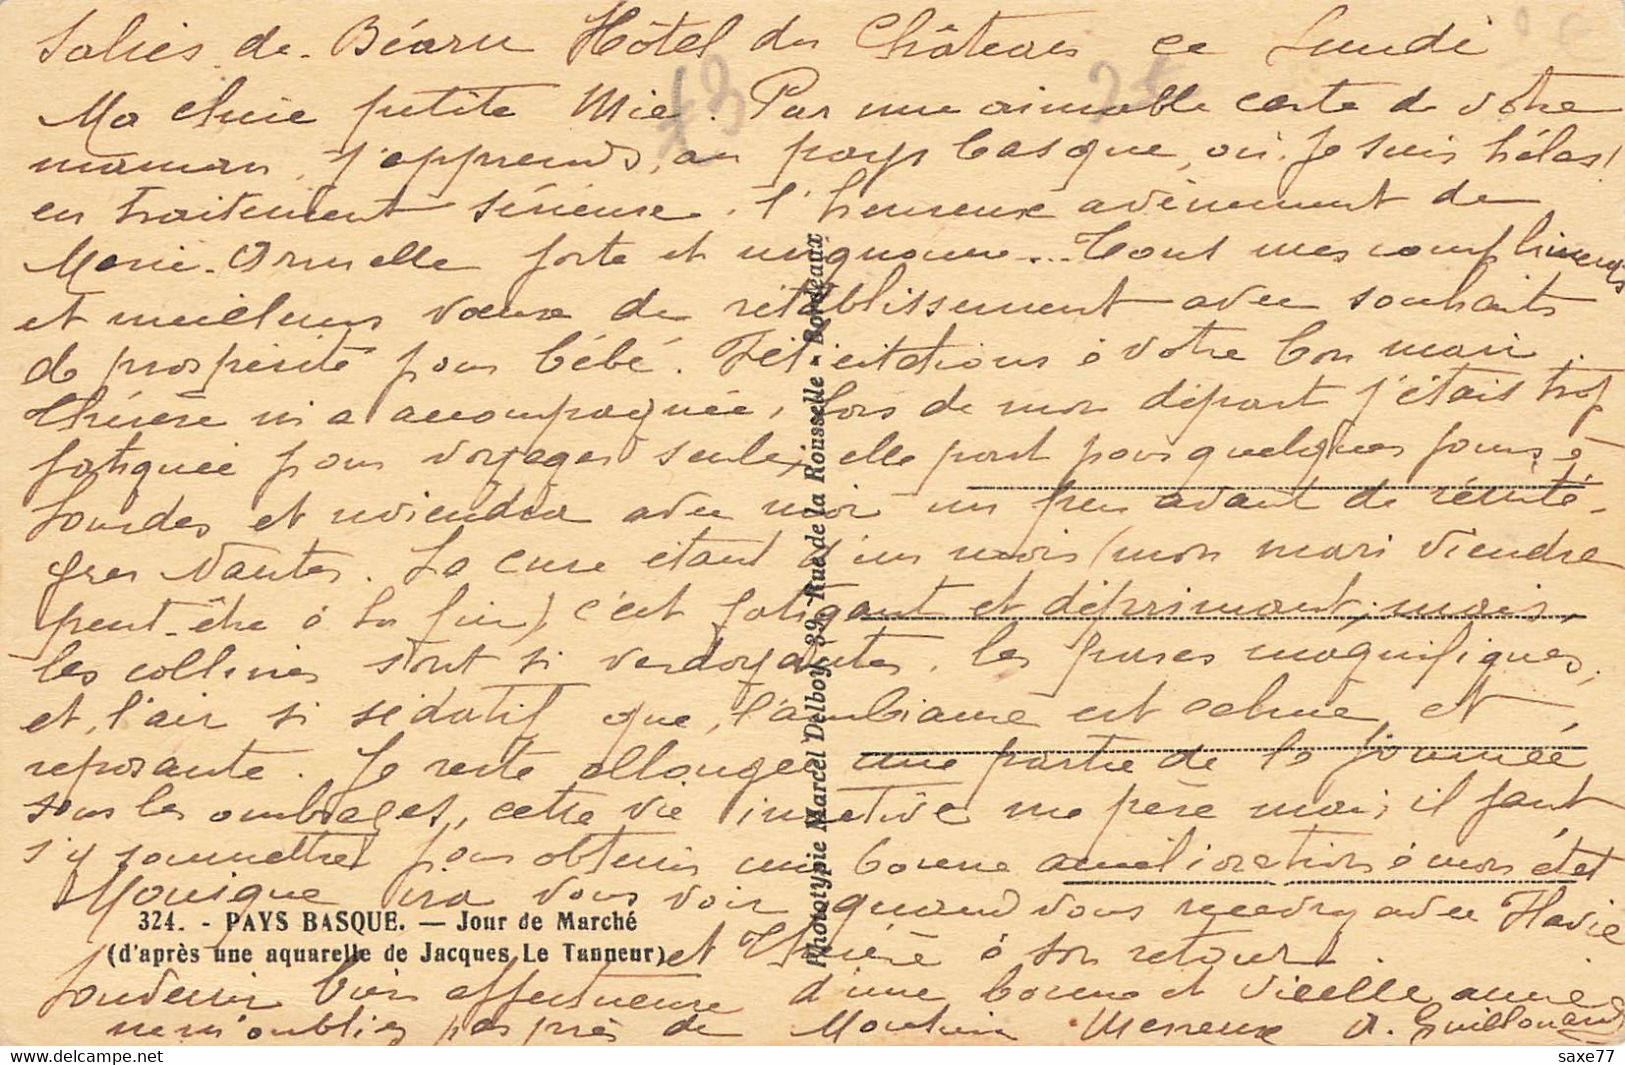 Salies-de-Béarn Hôtel du Château ce Lundi
Ma chère petite Mie. Par une aimable carte de votre
maman, j'apprends, au pays basque, où je suis hélas!
en traitement sérieux, l'heureux avènement de
Marie- forte et mignonne... Tous mes compliments
et meilleurs voeux de rétablissement avec souhaits
de prospérité pour bébé. Félicitations à votre bon mari.
Thérèse m'a accompagnée, lors de mon départ j'étais trop
fatiguée pour voyager seule, elle part pour quelques jours à
Lourdes et reviendra avec moi un peu avant de réinté-
grer Nantes. La cure étant d'un mois (mon mari viendra
peut-être à la fin) c'est fatigant et déprimant; mais,
les collines sont si verdoyantes, les magnifiques,
et, l'air si sédatif que, l'ambiance est calme et,
reposante. Je reste allongée une partie de la journée
sous les ombrages, cette vie inactive me pèse mais il faut
s'y soumettre pour obtenir une bonne amélioration à mon état
Monique ira vous voir quand vous avec
et Thérèse à son retour.
324. - PAYS BASQUE. — Jour de Marché
(d'après une aquarelle de Jacques Le Tanneur)
Souvenir bien affectueux d'une bonne et vieille amie
ne m'oubliez pas près de Messieux A. Guillouard
Phototypie Marcel Delboy, 39, Rue de la Rousselle - Bordeaux
saxe77